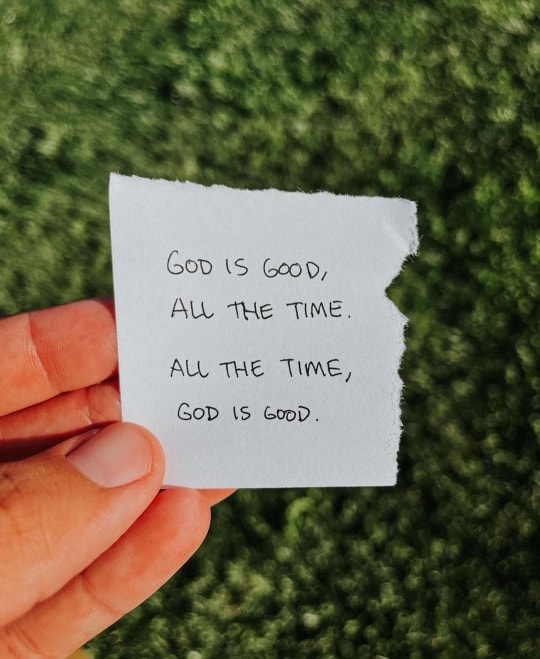 GOD IS GOOD,
ALL THE TIME.
ALL THE TIME,
GOD IS GOOD.